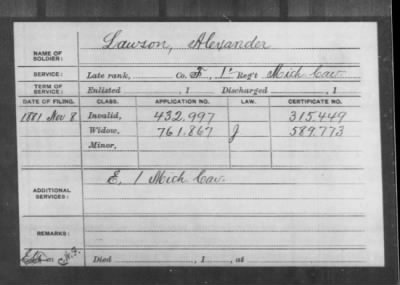 NAME OF SOLDIER: Lawson, Alexander
SERVICE: Late rank, Co. F, 1st Reg't Mich Cav.
TERM OF SERVICE: Enlisted , 1 Discharged , 1
DATE OF FILING. CLASS. APPLICATION NO. LAW. CERTIFICATE NO.
1881 Nov 8 Invalid, 432.997 315.449
Widow, 761.867 J 589.773
Minor,
ADDITIONAL SERVICES: E, 1 Mich Cav.
REMARKS:
Died , 1 , at